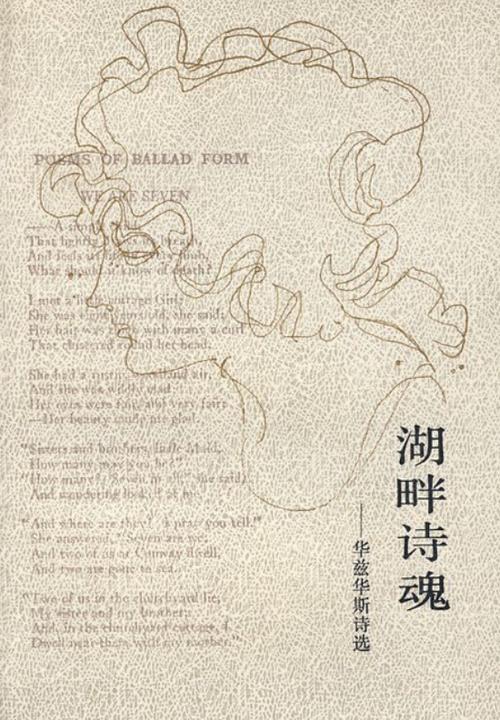 POEMS OF BALLAD FORM
WE ARE SEVEN
—— A simple
That lightly
And feels its life in every limb,
What should it know of death?
I met a little cottage Girl:
She was eight years old, she said;
Her hair was thick with many a curl
That clustered round her head.
She had a rustic, woodland air,
And she was wildly clad:
Her eyes were fair, and very fair;
—Her beauty made me glad.
"Sisters and brothers, little Maid,
How many may you be?"
"How many? Seven in all," she said,
And wondering looked at me.
"And where are they? I pray you tell."
She answered, "Seven are we;
And two of us at Conway dwell,
And two are gone to sea.
"Two of us in the churchyard lie,
My sister and my brother;
And, in the churchyard cottage, I
Dwell near them with my mother."
湖畔诗魂
——华兹华斯诗选